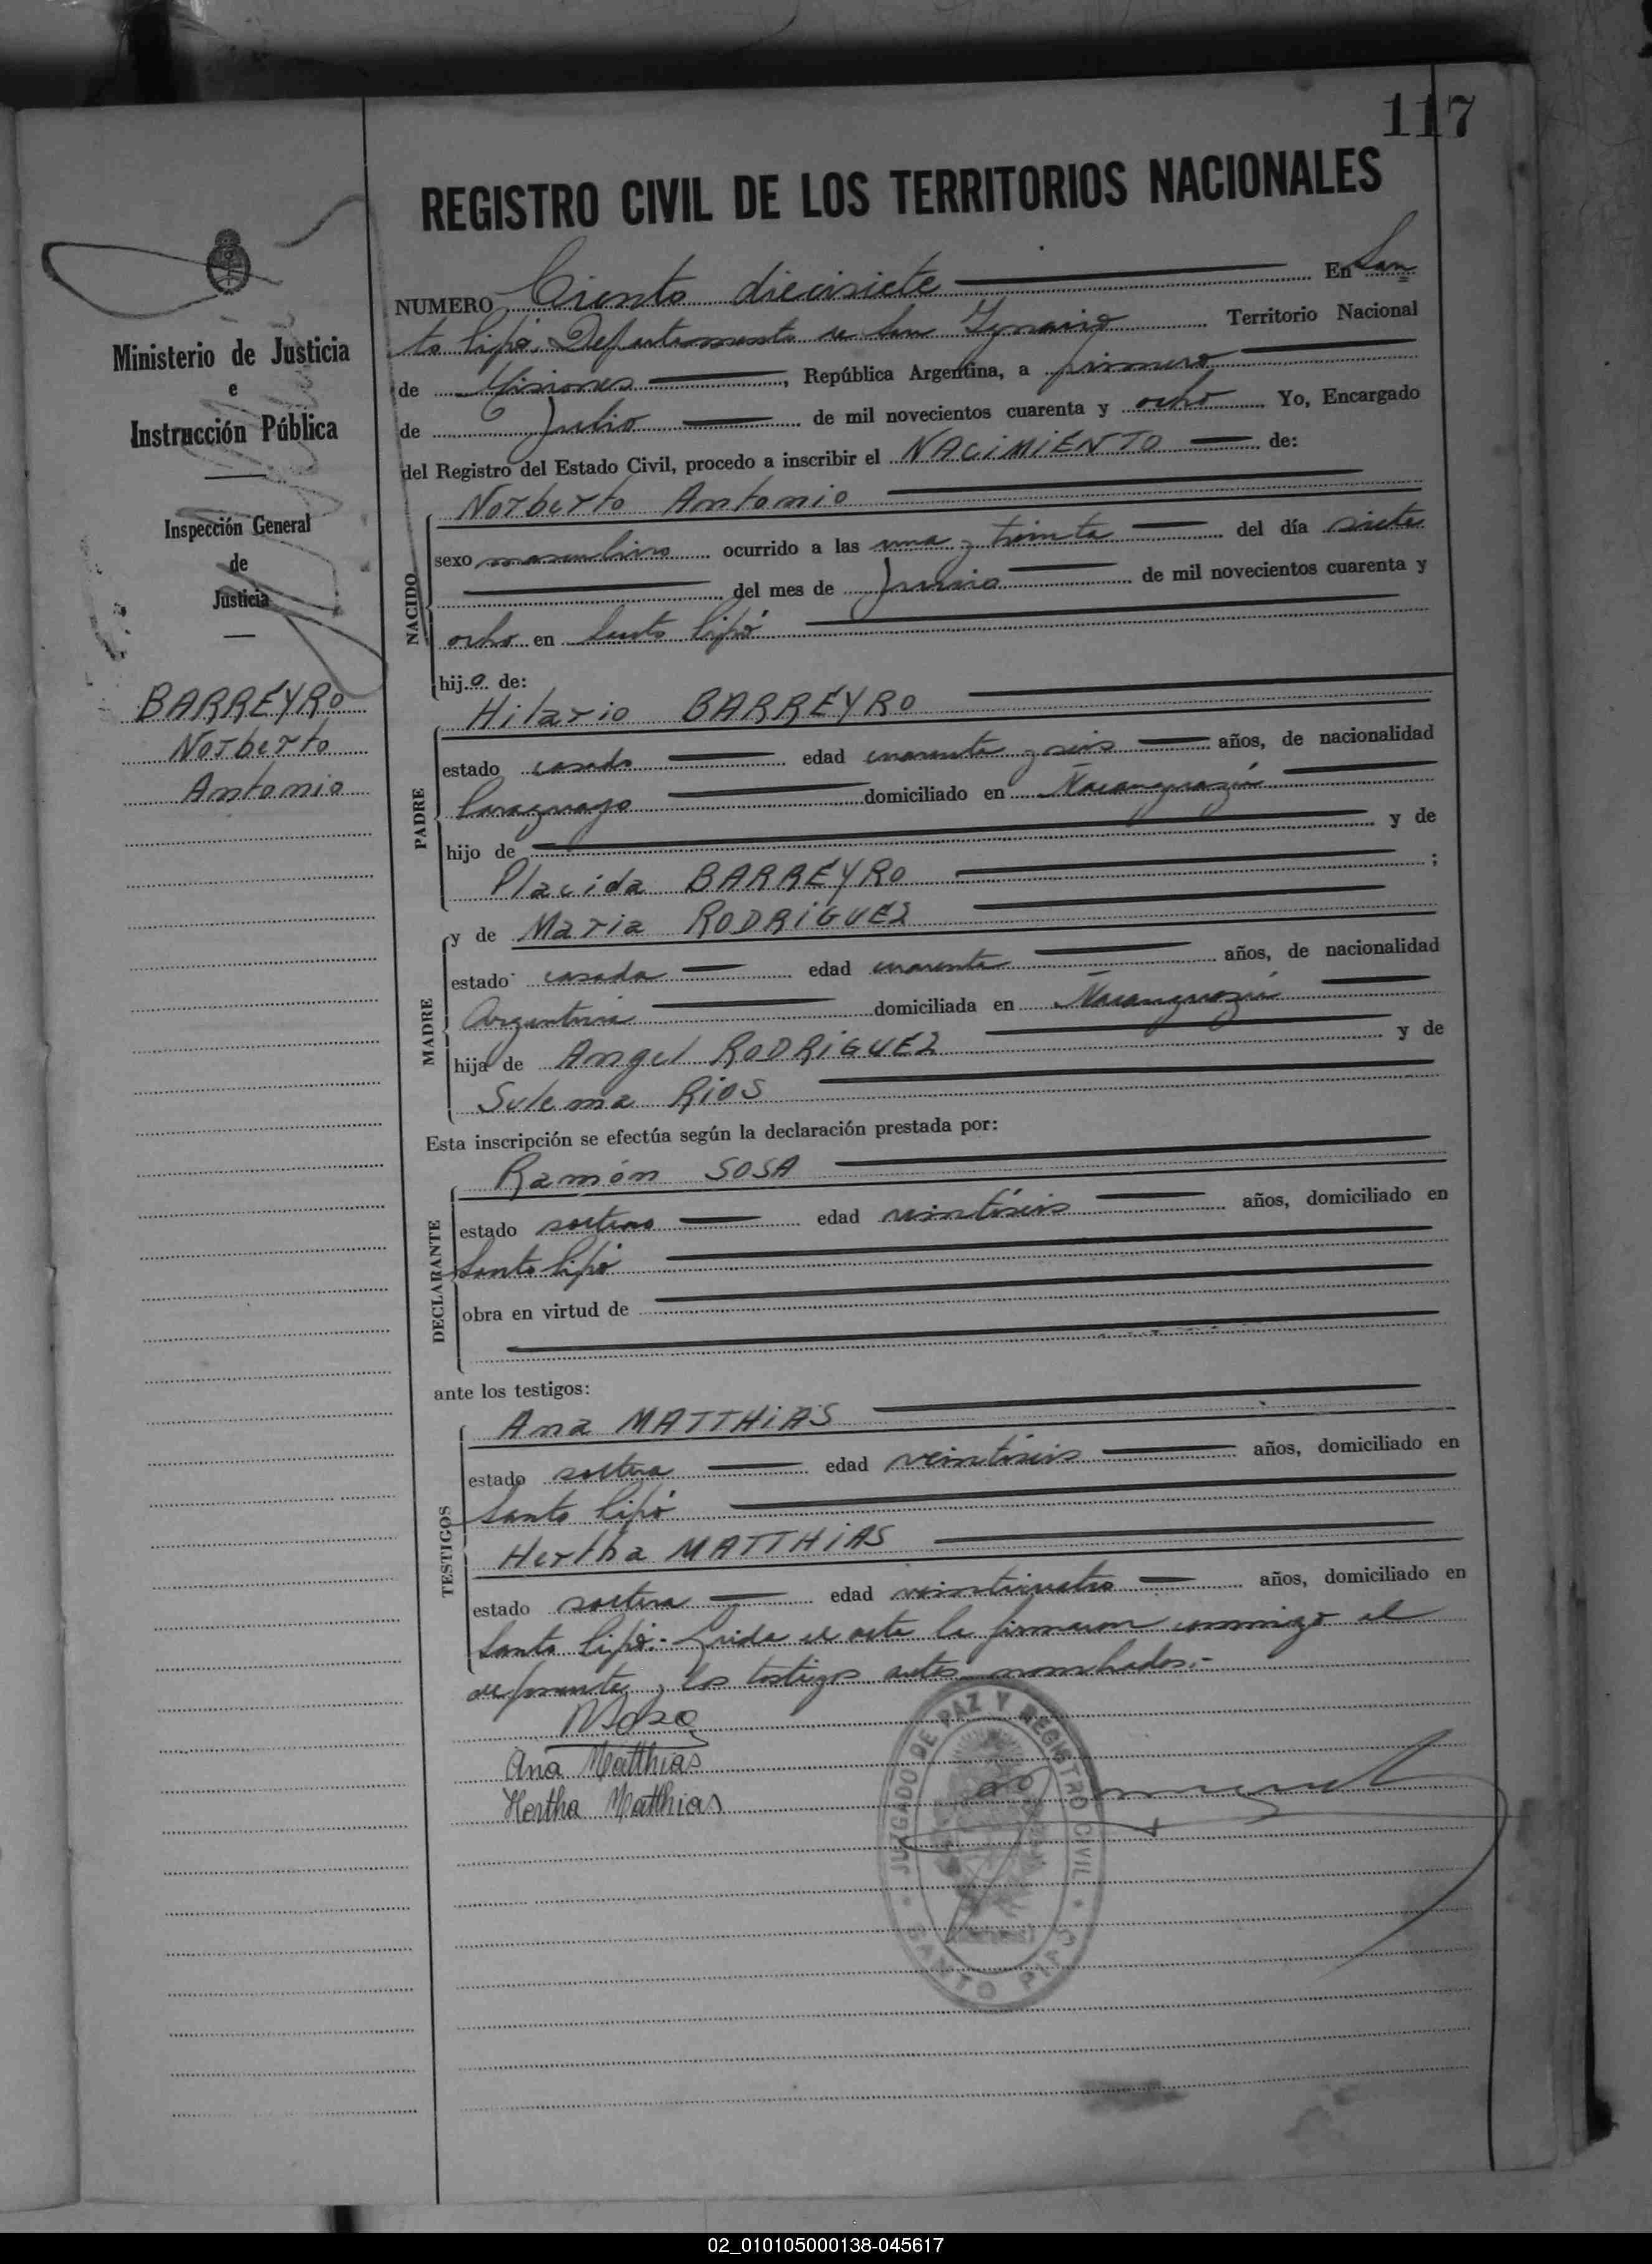 117
REGISTRO CIVIL DE LOS TERRITORIOS NACIONALES
Ministerio de Justicia
e
Instrucción Pública
Inspección General
de
Justicia
BARREYRO
Norberto
Antonio
NUMERO Ciento diecisiete En San
to Pipó. Departamento de San Ignacio Territorio Nacional
de Misiones, República Argentina, a primero
de Julio de mil novecientos cuarenta y ocho Yo, Encargado
del Registro del Estado Civil, procedo a inscribir el NACIMIENTO de:
NACIDO
Norberto Antonio
sexo masculino ocurrido a las una y treinta del día siete
del mes de Junio de mil novecientos cuarenta y
ocho en Santo Pipó
hijo de:
PADRE
Hilario BARREYRO
estado casado edad cuarenta y seis años, de nacionalidad
Paraguayo domiciliado en Ñacanguazú
hijo de y de
Placida BARREYRO ;
MADRE
y de Maria RODRIGUEZ
estado casada edad cuarenta años, de nacionalidad
Argentina domiciliada en Ñacanguazú
hija de Angel RODRIGUEZ y de
Sulema RIOS
Esta inscripción se efectúa según la declaración prestada por:
DECLARANTE
Ramón SOSA
estado soltero edad veintiseis años, domiciliado en
Santo Pipó
obra en virtud de
ante los testigos:
TESTIGOS
Ana MATTHIAS
estado soltera edad veintiseis años, domiciliado en
Santo Pipó
Hertha MATTHIAS
estado soltera edad veinticuatro años, domiciliado en
Santo Pipó.- Leida el acta la firmaron conmigo el
deponente y los testigos antes nombrados.-
RSosa
Ana Matthias
Hertha Matthias
JUZGADO DE PAZ Y REGISTRO CIVIL
SANTO PIPÓ
02_010105000138-045617